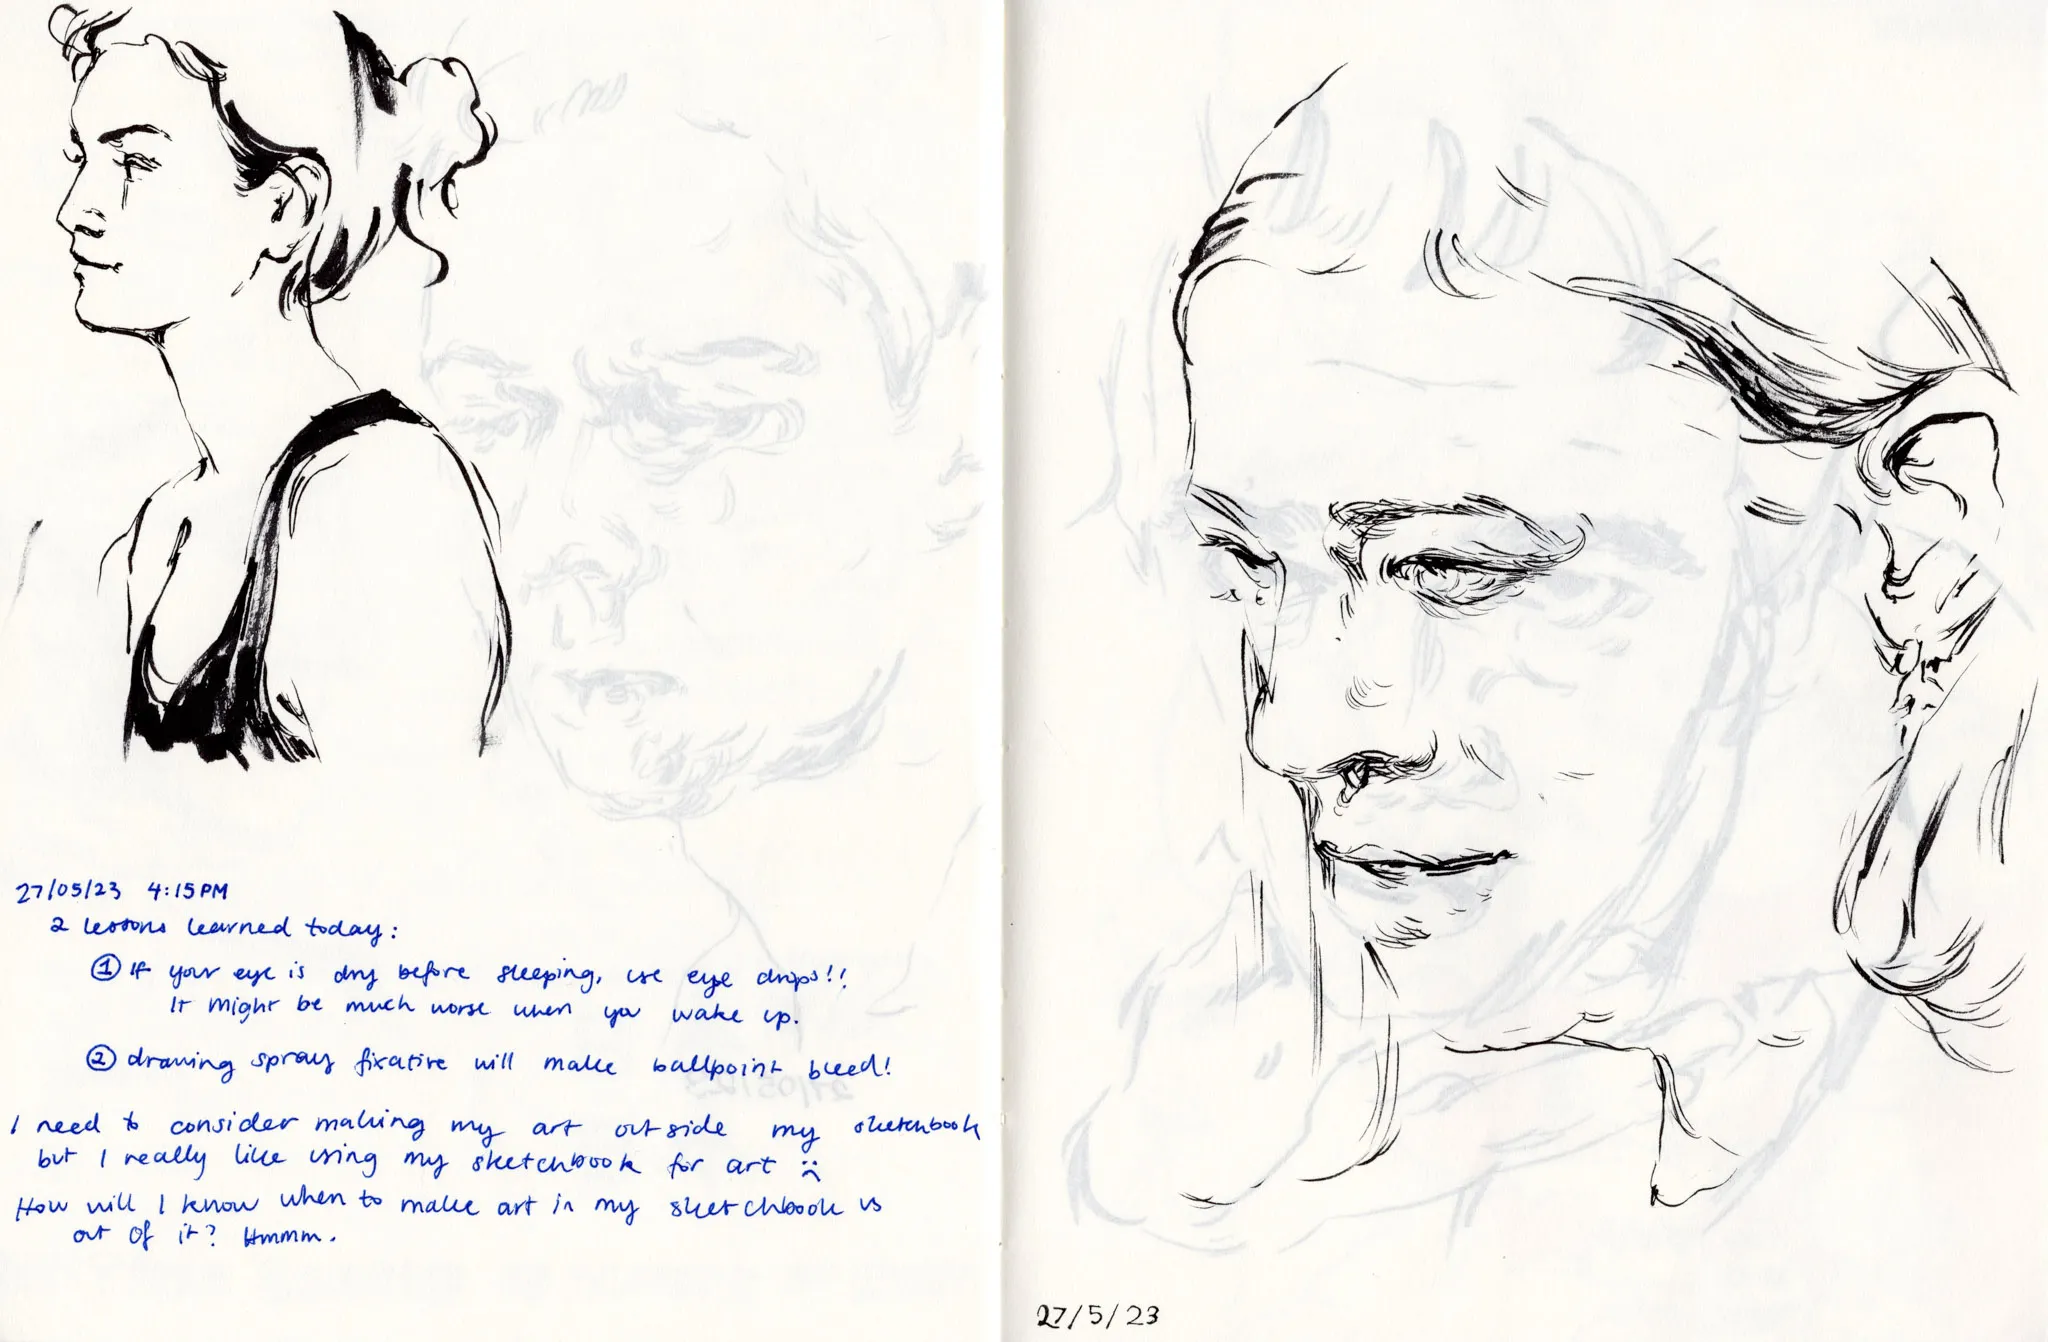 27/05/23 4:15PM
2 lessons learned today:
① If your eye is dry before sleeping, use eye drops!!
It might be much worse when you wake up.
② drawing spray fixative will make ballpoint bleed!
I need to consider making my art outside my sketchbook
but I really like using my sketchbook for art ☹
How will I know when to make art in my sketchbook vs
out of it? Hmmm.
27/05/23
27/5/23